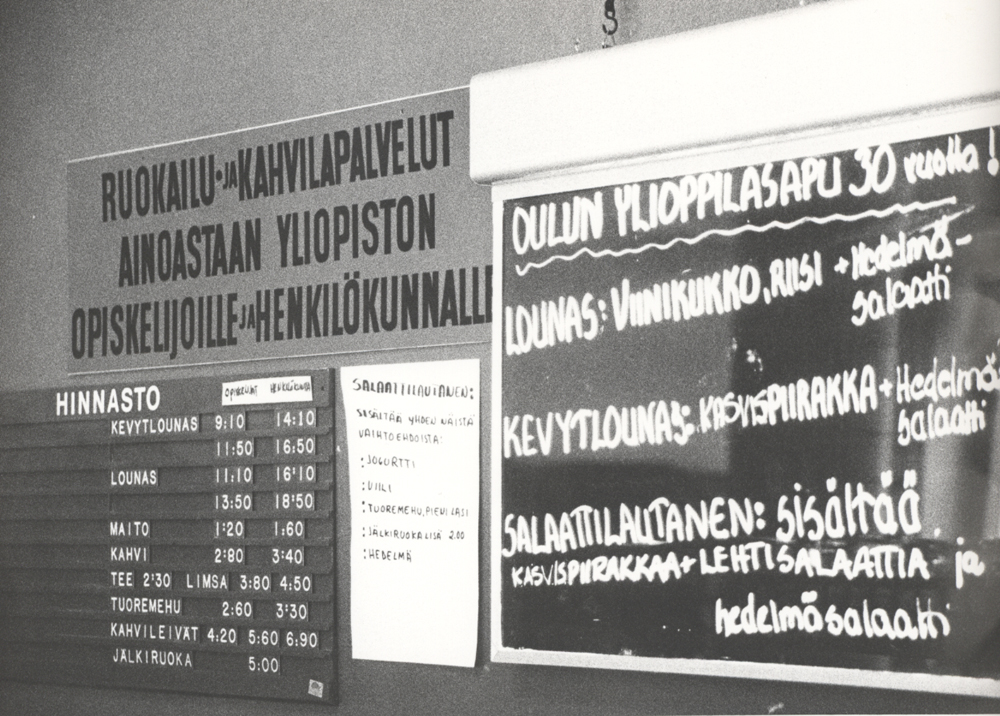 RUOKAILU-JA KAHVILAPALVELUT
AINOASTAAN YLIOPISTON
OPISKELIJOILLE JA HENKILÖKUNNALLE
HINNASTO
OPISKELIJAT HENKILÖKUNTA
KEVYTLOUNAS 9:10 14:10
11:50 16:50
LOUNAS 11:10 16:10
13:50 18:50
MAITO 1:20 1:60
KAHVI 2:80 3:40
TEE 2:30 LIMSA 3:80 4:50
TUOREMEHU 2:60 3:30
KAHVILEIVÄT 4:20 5:60 6:90
JÄLKIRUOKA 5:00
SALAATTILAUTANEN:
SISÄLTÄÄ YHDEN NÄISTÄ
VAIHTOEHDOISTA:
: JOGURTTI
: VIILI
: TUOREMEHU, PIENI LASI
: JÄLKIRUOKA LISÄ 2.00
: HEDELMÄ
OULUN YLIOPPILASAPU 30 vuotta!
LOUNAS: VIINIKUKKO, RIISI + Hedelmä-
salaatti
KEVYTLOUNAS: KASVISPIIRAKKA + Hedelmä-
salaatti
SALAATTILAUTANEN: sisältää
KASVISPIIRAKKAA + LEHTISALAATTIA ja
hedelmäsalaatti